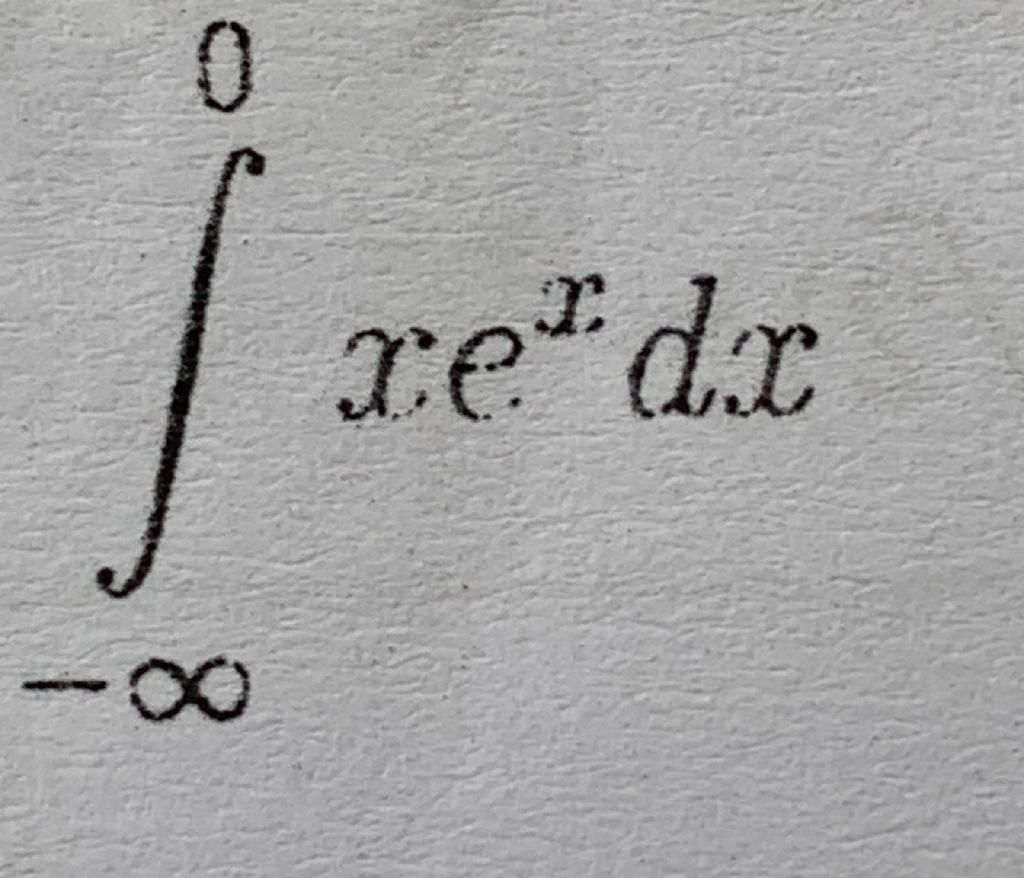 0
∫ xeˣ dx
−∞